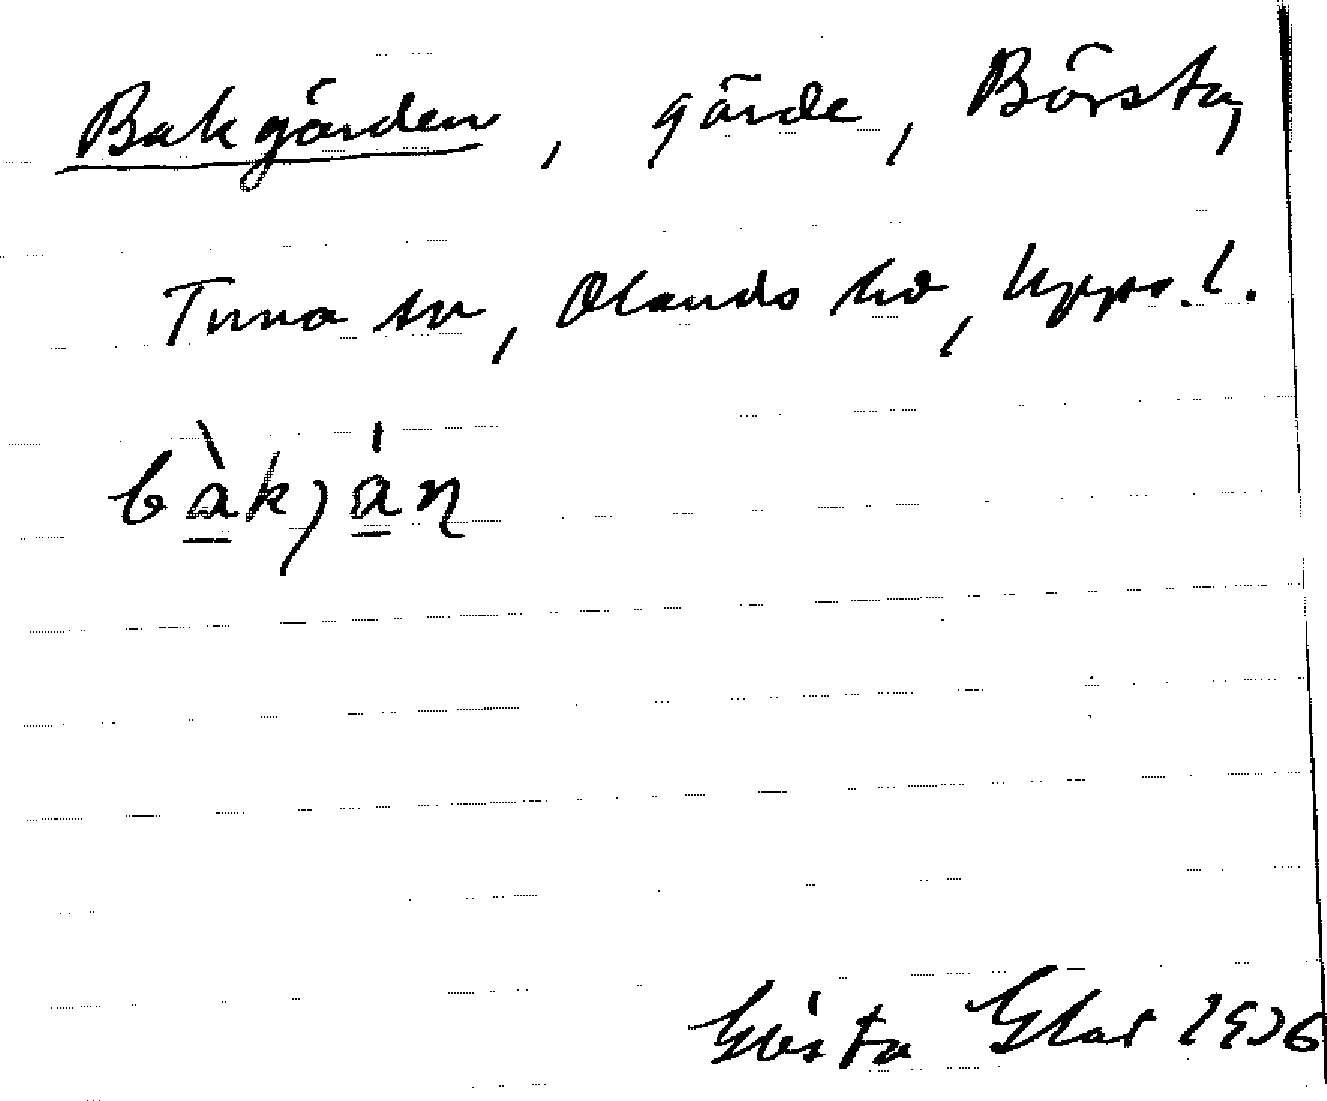 Bakgärden, gärde, Börsta,
Tuna sn, Olands hd, Upps. l.
bàkján
Gösta Elar 1936